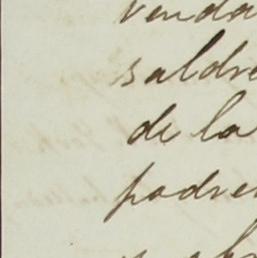 venda
saldre
de la
padre